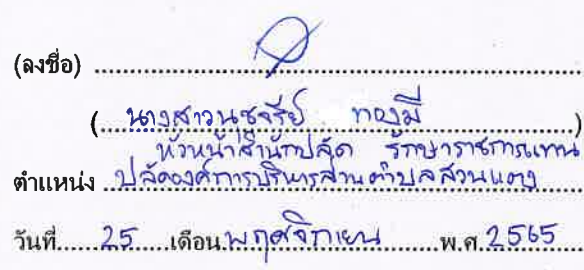 (ลงชื่อ)
(นางสาวนุชจรีย์ ทองมี)
หัวหน้าสำนักปลัด รักษาราชการแทน
ตำแหน่ง ปลัดองค์การบริหารส่วนตำบลสวนแตง
วันที่ 25 เดือน พฤศจิกายน พ.ศ. 2565